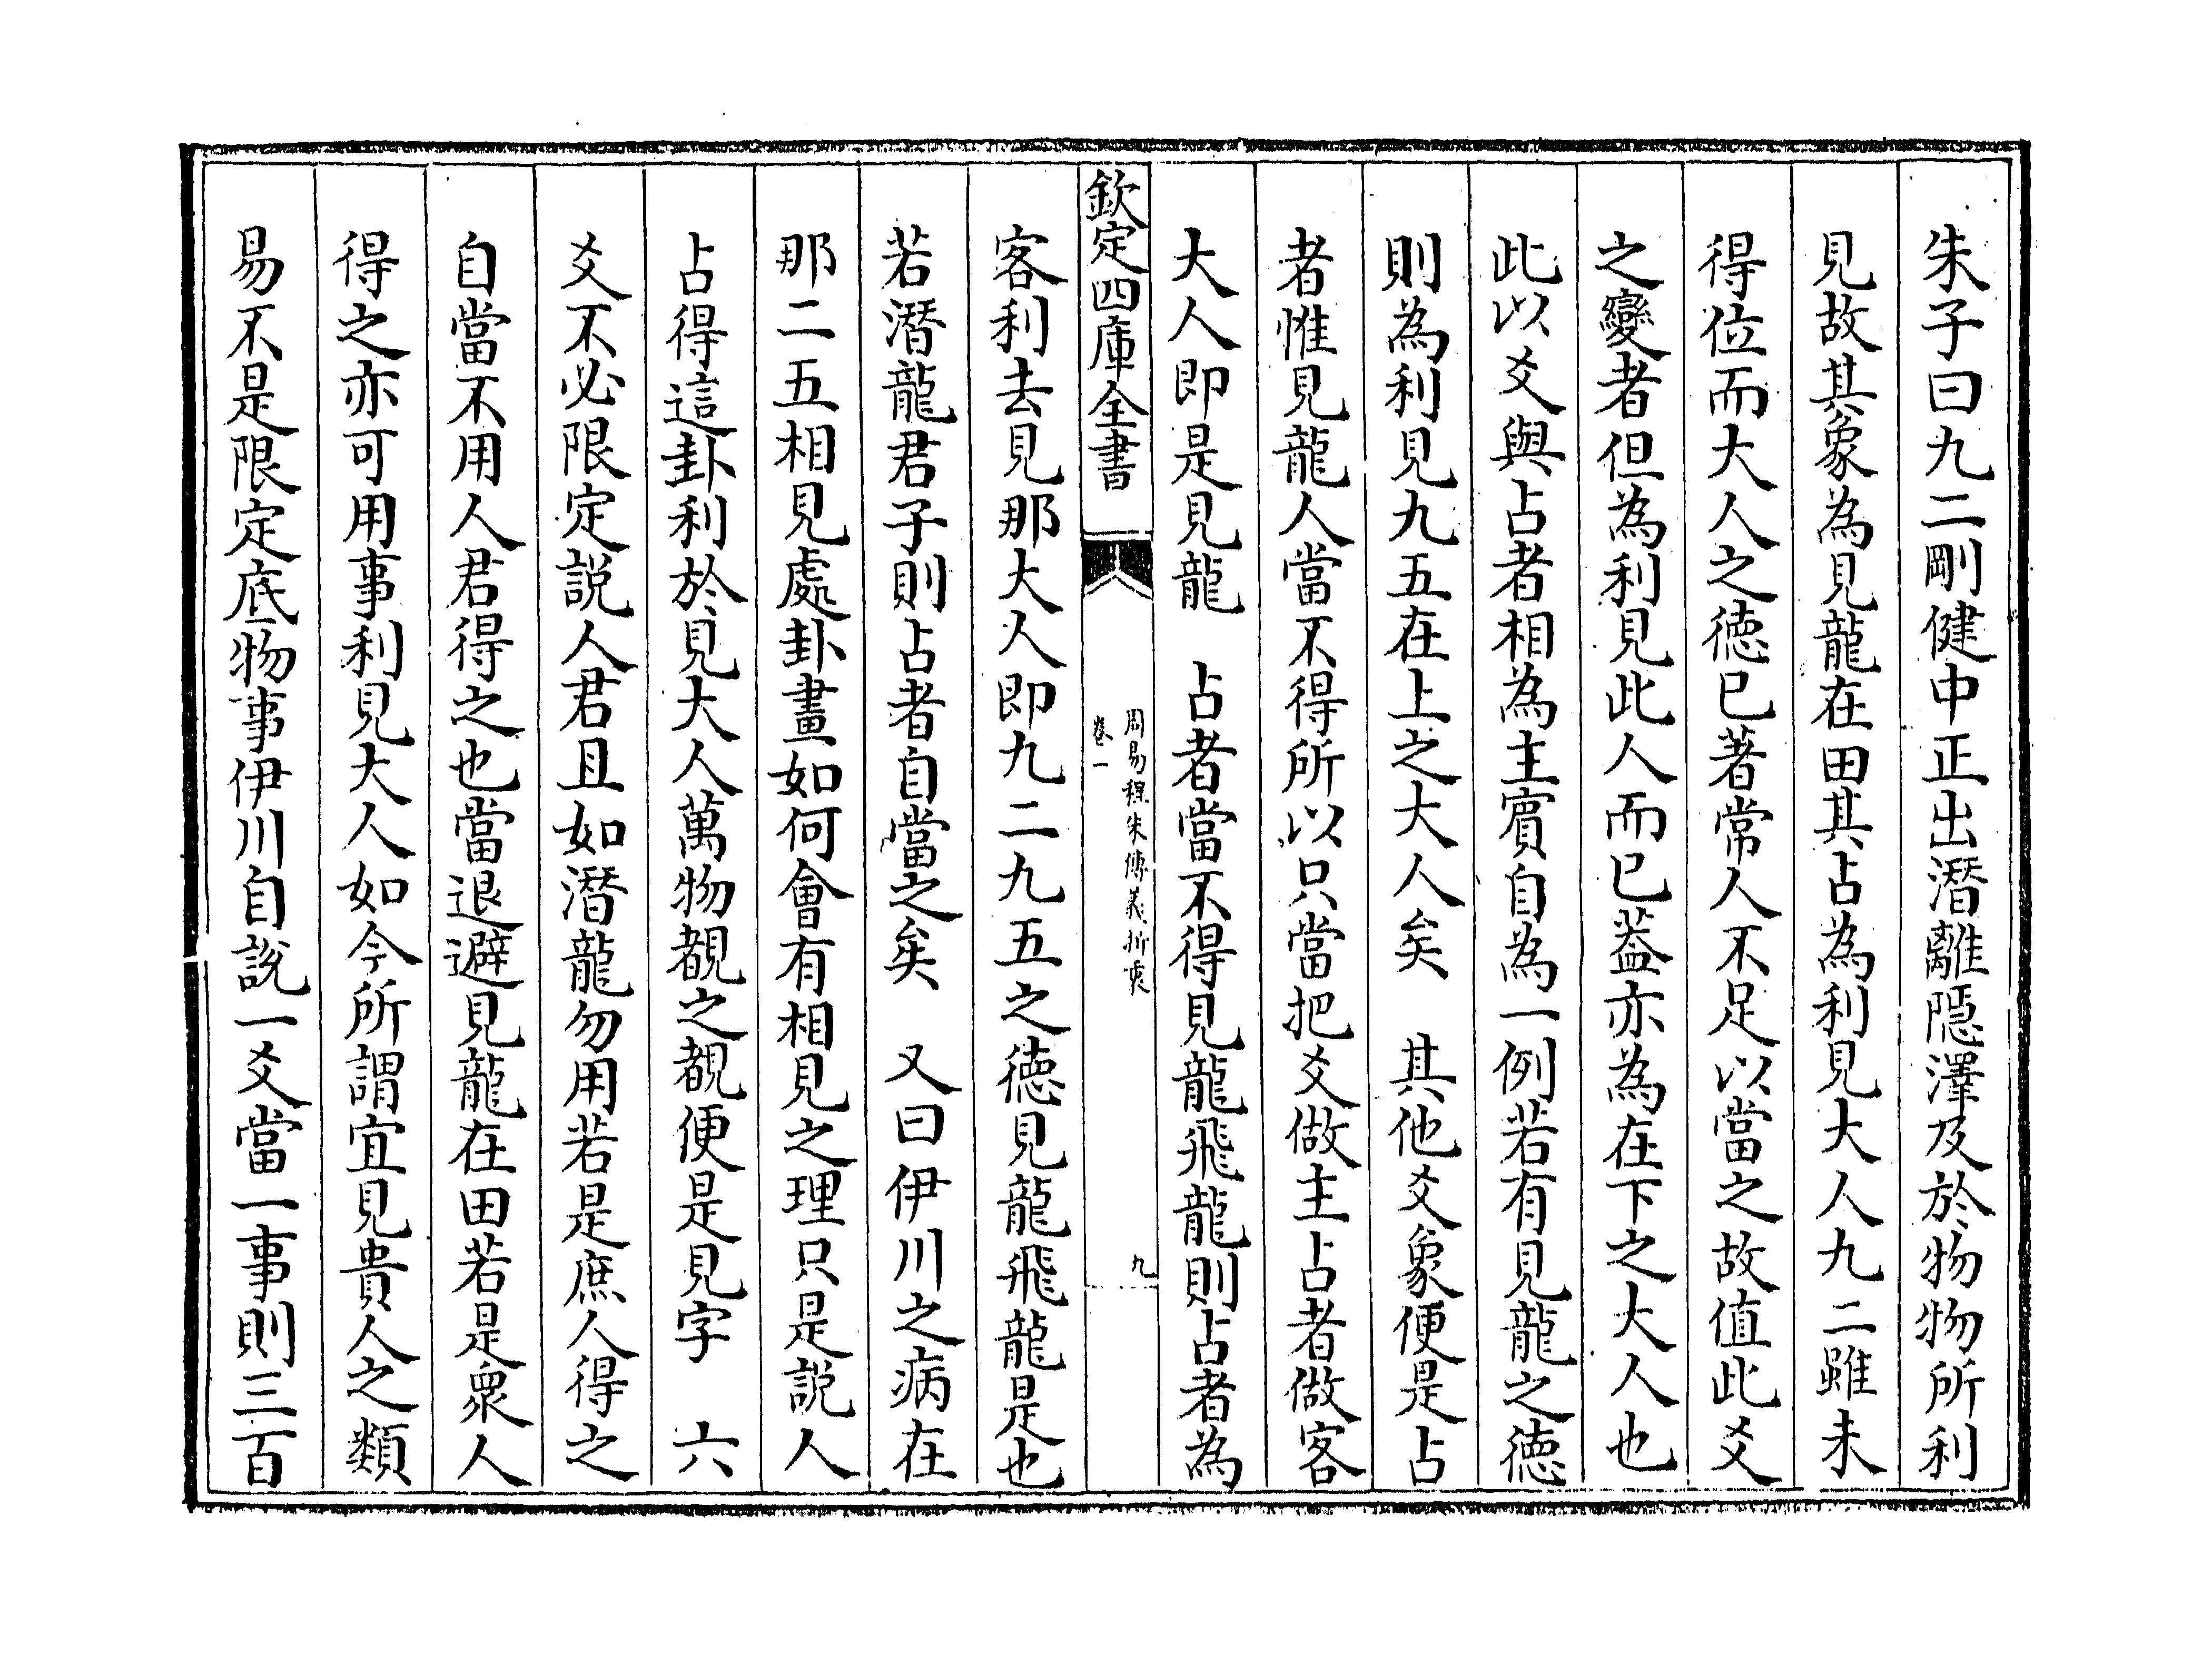 朱子曰九二剛健中正出潛離隠澤及於物物所利
見故其象為見龍在田其占為利見大人九二雖未
得位而大人之徳已著常人不足以當之故值此爻
之變者但為利見此人而已葢亦為在下之大人也
此以爻與占者相為主賓自為一例若有見龍之徳
則為利見九五在上之大人矣　其他爻象便是占
者惟見龍人當不得所以只當把爻做主占者做客
大人即是見龍　占者當不得見龍飛龍則占者為
欽定四庫全書
周易程朱傳義折衷
卷一
九
客利去見那大人即九二九五之徳見龍飛龍是也
若潛龍君子則占者自當之矣　又曰伊川之病在
那二五相見處卦畫如何會有相見之理只是説人
占得這卦利於見大人萬物覩之覩便是見字　六
爻不必限定説人君且如潛龍勿用若是庶人得之
自當不用人君得之也當退避見龍在田若是衆人
得之亦可用事利見大人如今所謂宜見貴人之類
易不是限定底物事伊川自説一爻當一事則三百